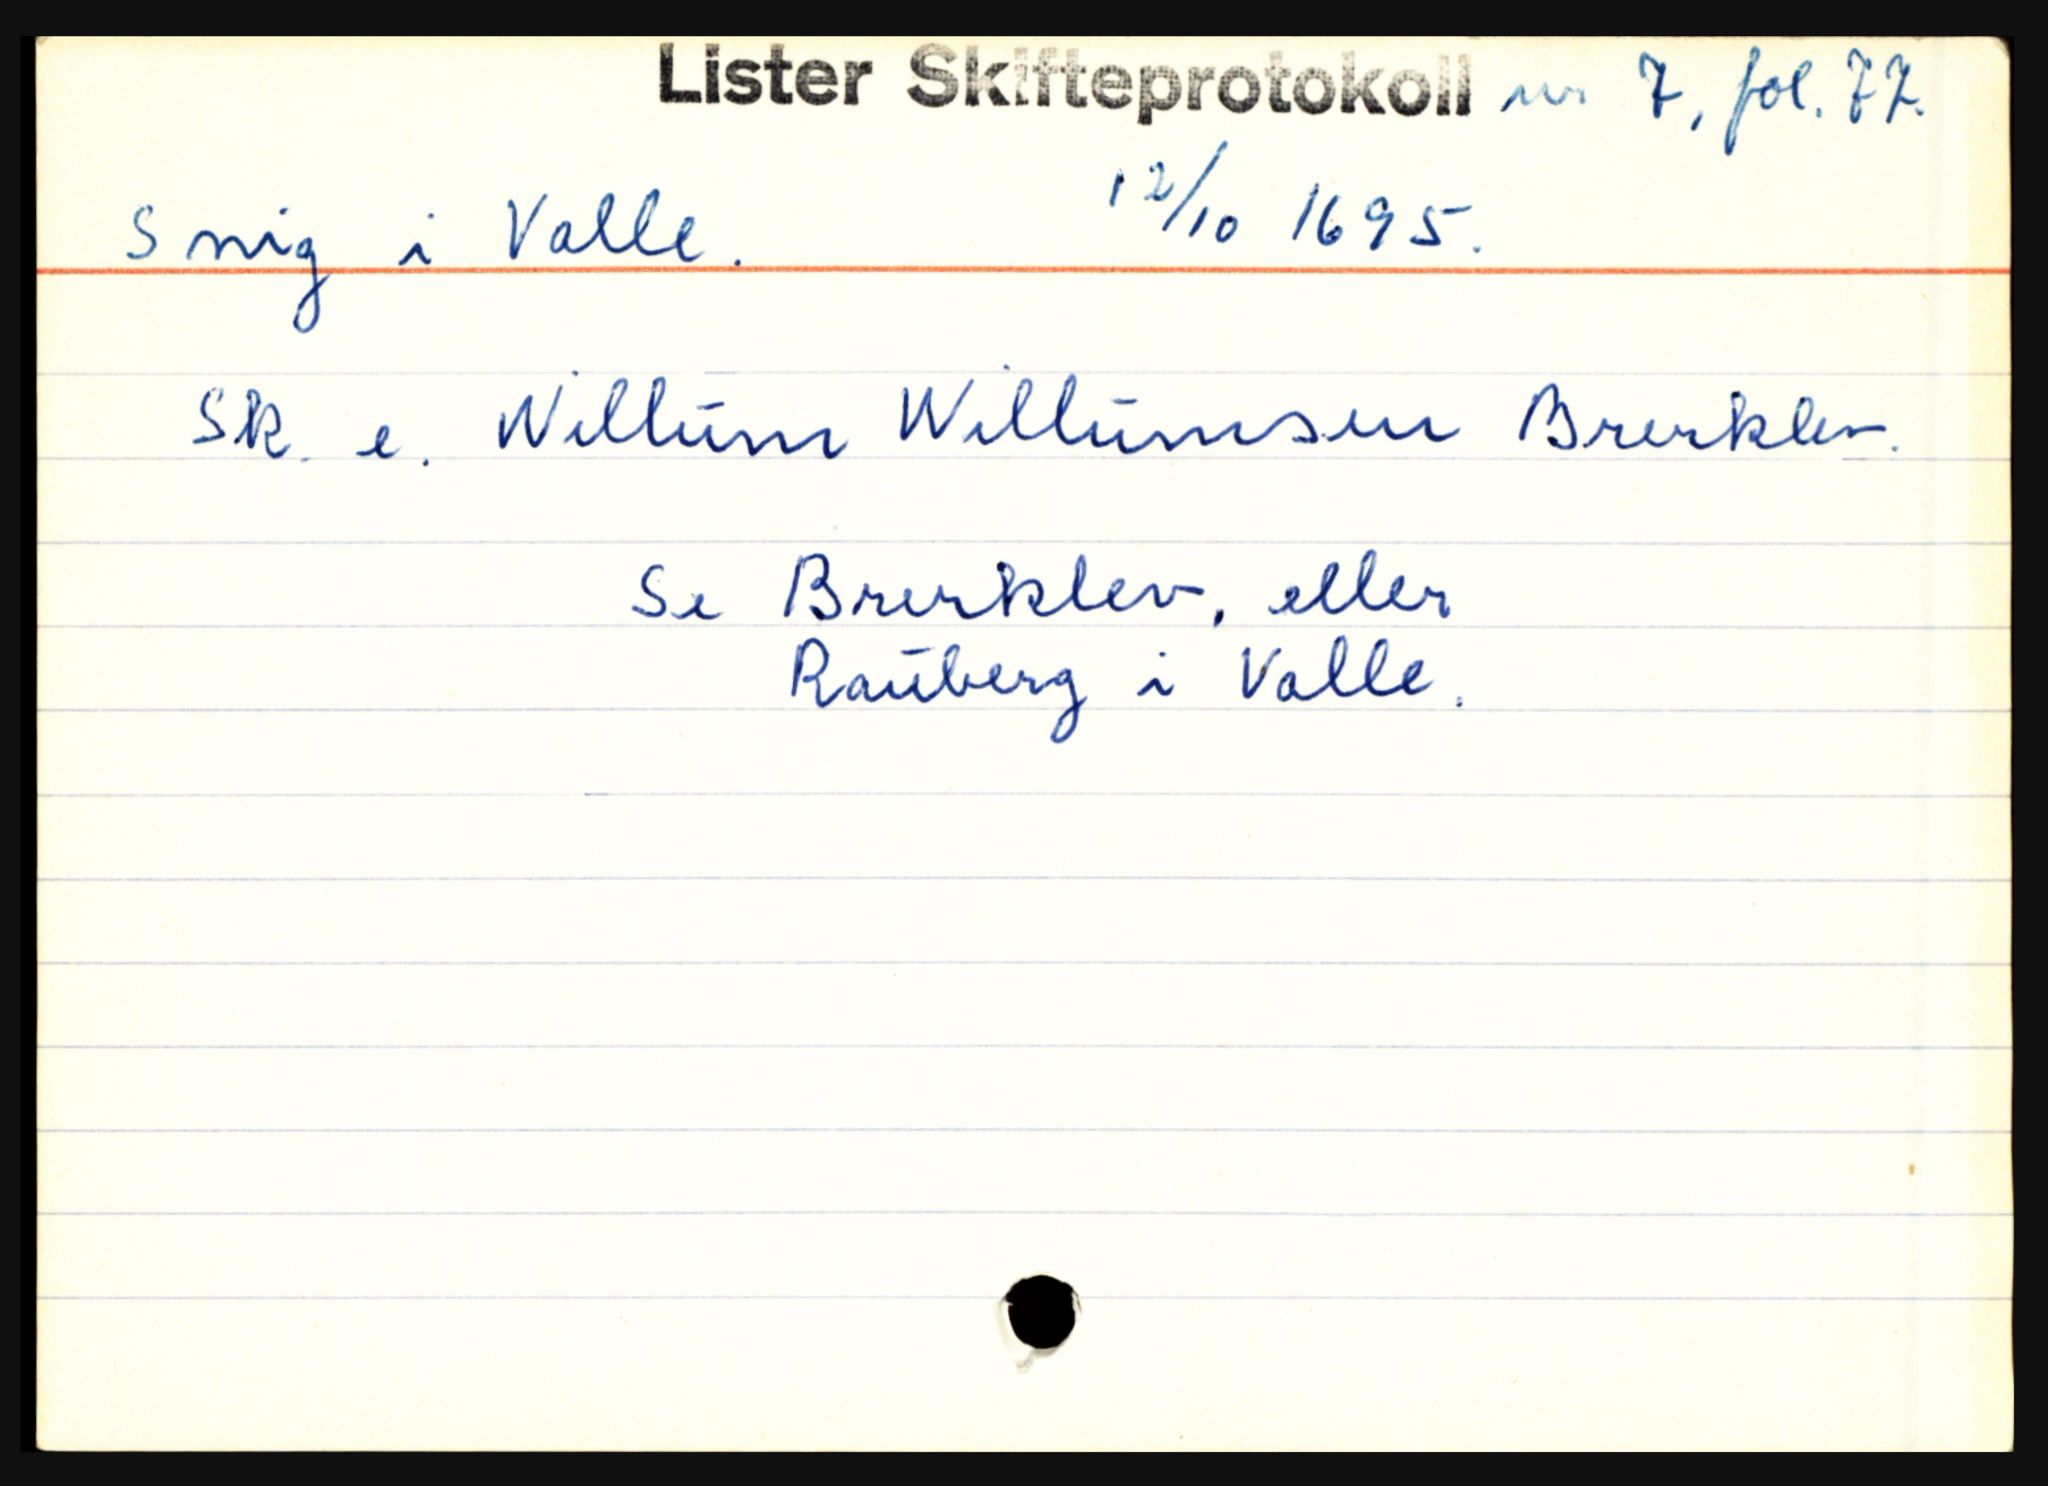 Lister Skifteprotokoll nr 7, fol. 77.
12/10 1695.
Snig i Valle.
Sk. e. Willum Willumsen Brerklev.
Se Brerklev, eller
Rauberg i Valle.